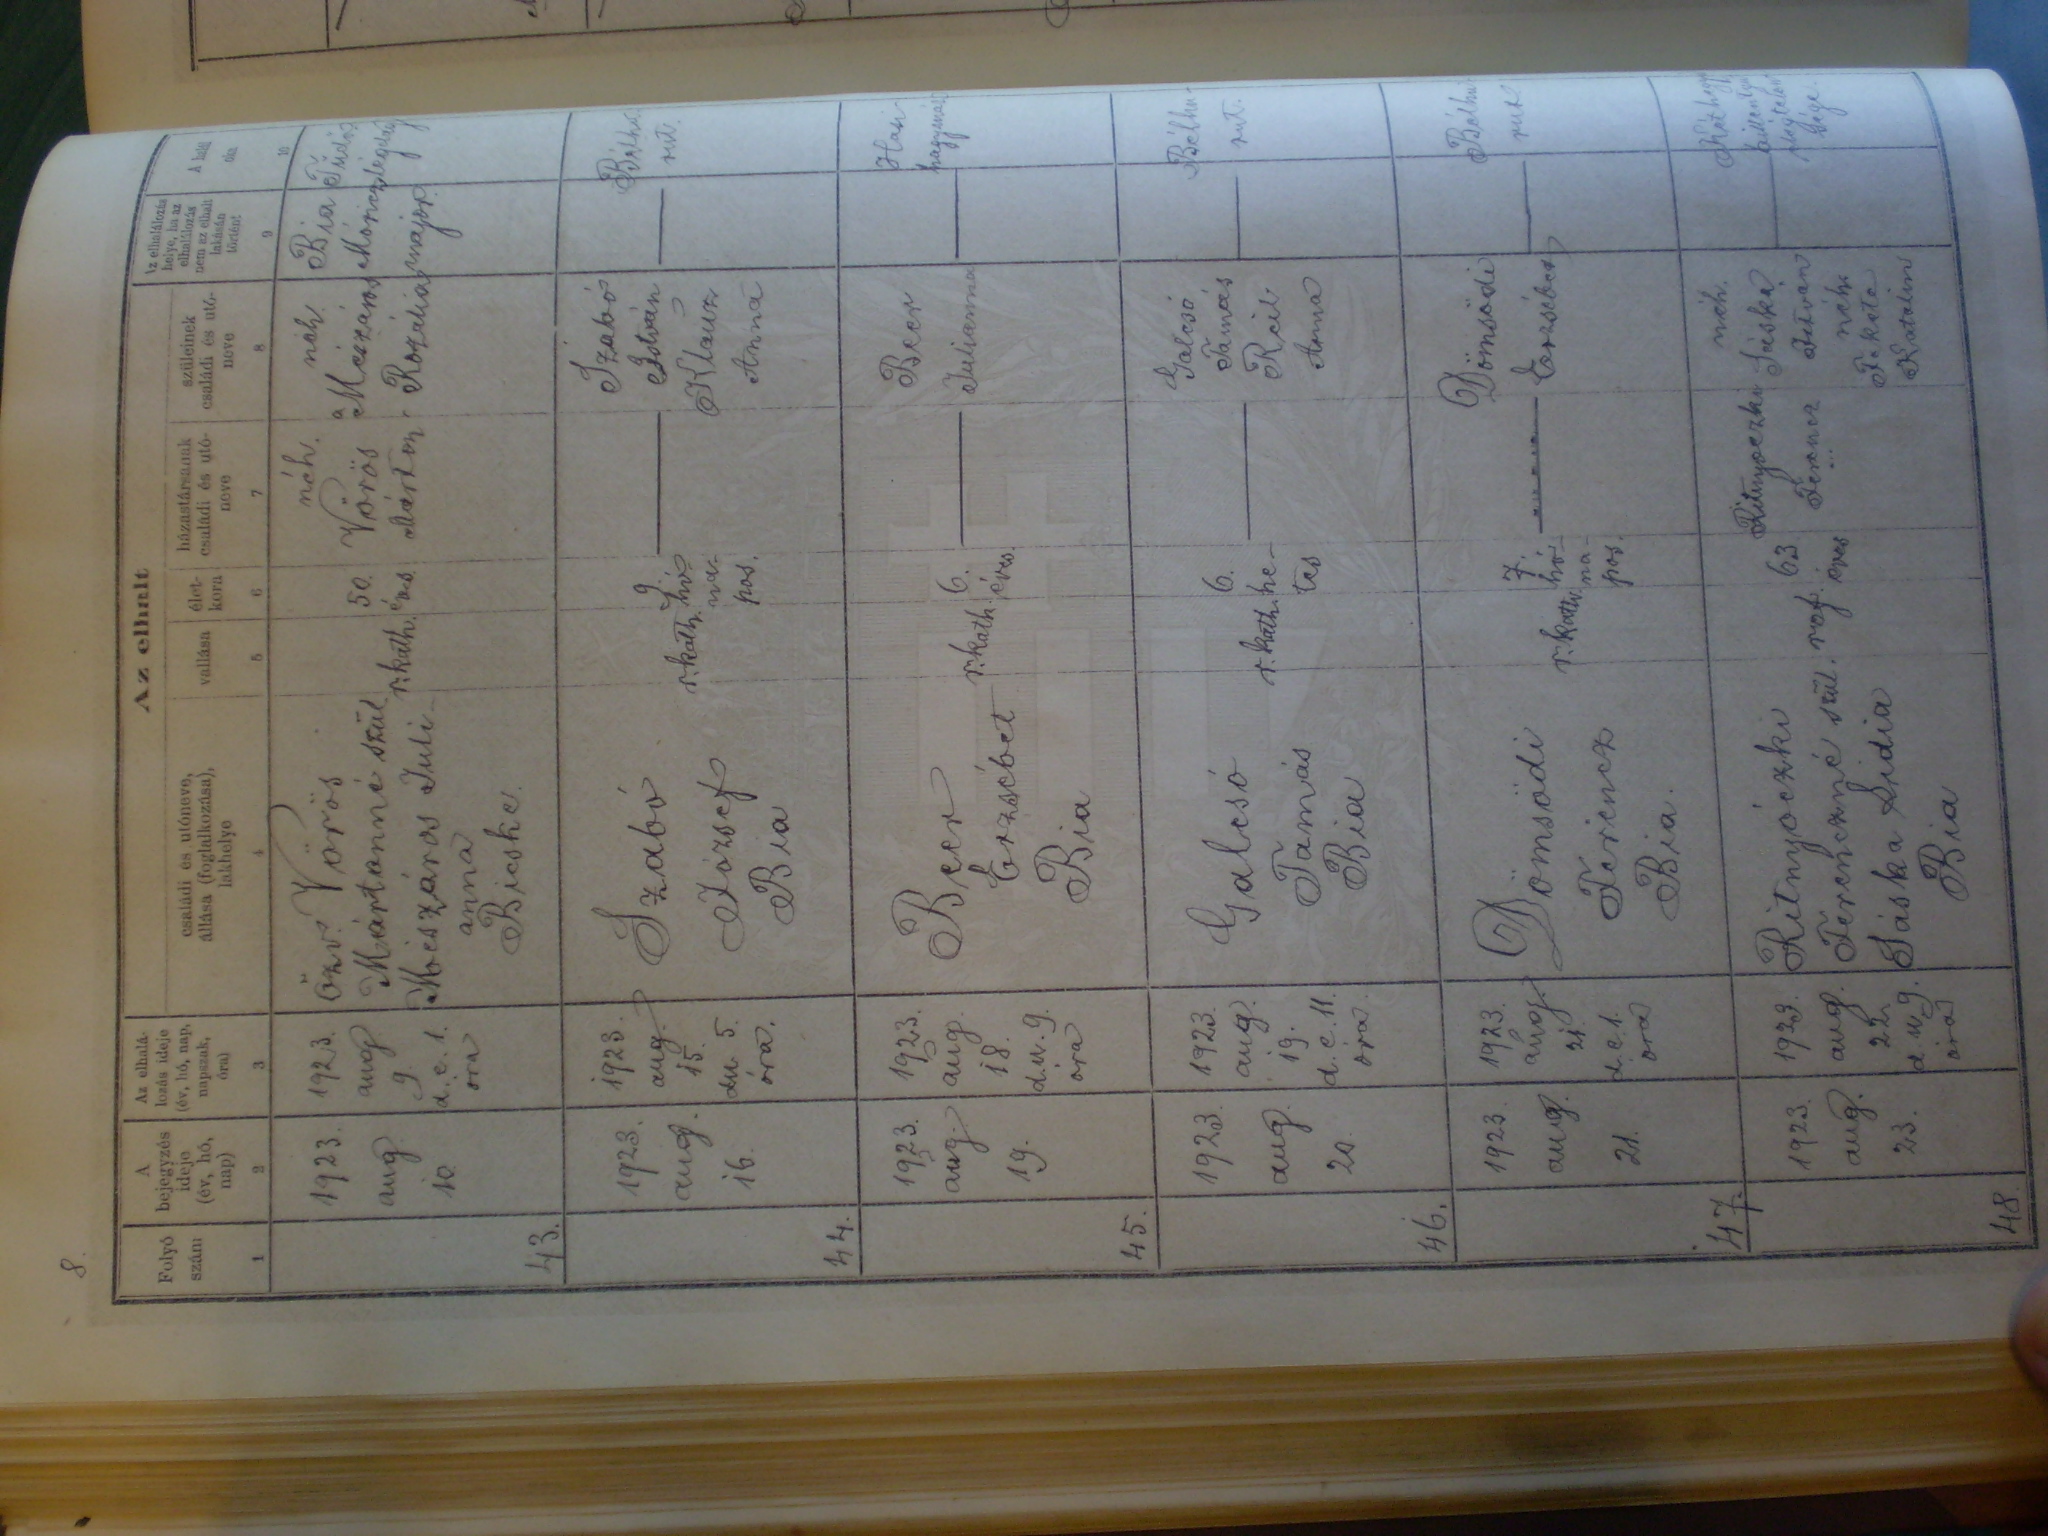 8.
Az elhalt
Folyó
szám
A
bejegyzés
ideje
(év, hó,
nap)
Az elhalá-
lozás ideje
(év, hó, nap,
napszak,
óra)
családi és utóneve,
állása (foglalkozása),
lakhelye
vallása
élet-
kora
házastársának
családi és utó-
neve
szüleinek
családi és utó-
neve
Az elhalálozás
helye, ha az
elhalálozás
nem az elhalt
lakásán
történt
A halál
oka
1
2
3
4
5
6
7
8
9
10
43.
1923.
aug
10.
1923.
aug
9.
d. e. 1.
óra
özv. Vörös
Mártonné szül
Mészáros Juli-
anna
Bicske.
r. kath.
50.
éves
néh.
Vörös
Márton
néh.
Mészáros
Rozália
Bia
Móricz
major.
44.
1923.
aug.
16.
1923.
aug.
15.
du 5.
óra.
Szabó
József
Bia
r. kath.
9.
hó
na-
pos.
Szabó
István
Klausz
Anna
Bélhu-
rut.
45.
1923.
aug.
19.
1923.
aug.
18.
d. u. 9.
óra
Beer
Erzsébet
Bia
r. kath.
6.
éves.
Beer
Julianna
Hasi-
hagymáz
46.
1923.
aug.
20.
1923.
aug.
19.
d. e. 11.
óra.
Galcsó
Tamás
Bia
r. kath.
6.
he-
tes
Galcsó
Tamás
Anna
Bélhu-
rut.
47.
1923.
aug.
21.
1923.
aug.
21.
d. e. 1.
óra
Dömsödi
Ferencz
Bia.
r. kath.
7.
hó-
na-
pos.
Dömsödi
Erzsébet
Bélhu-
rut
48.
1923.
aug.
23.
1923.
aug.
22.
d. u. 9.
óra
Ritnyóczki
Ferenczné szül.
Sáska Lidia
Bia
ref.
63
éves
Ritnyóczki
Ferencz
néh.
Sáska
István
néh.
Fekete
Katalin